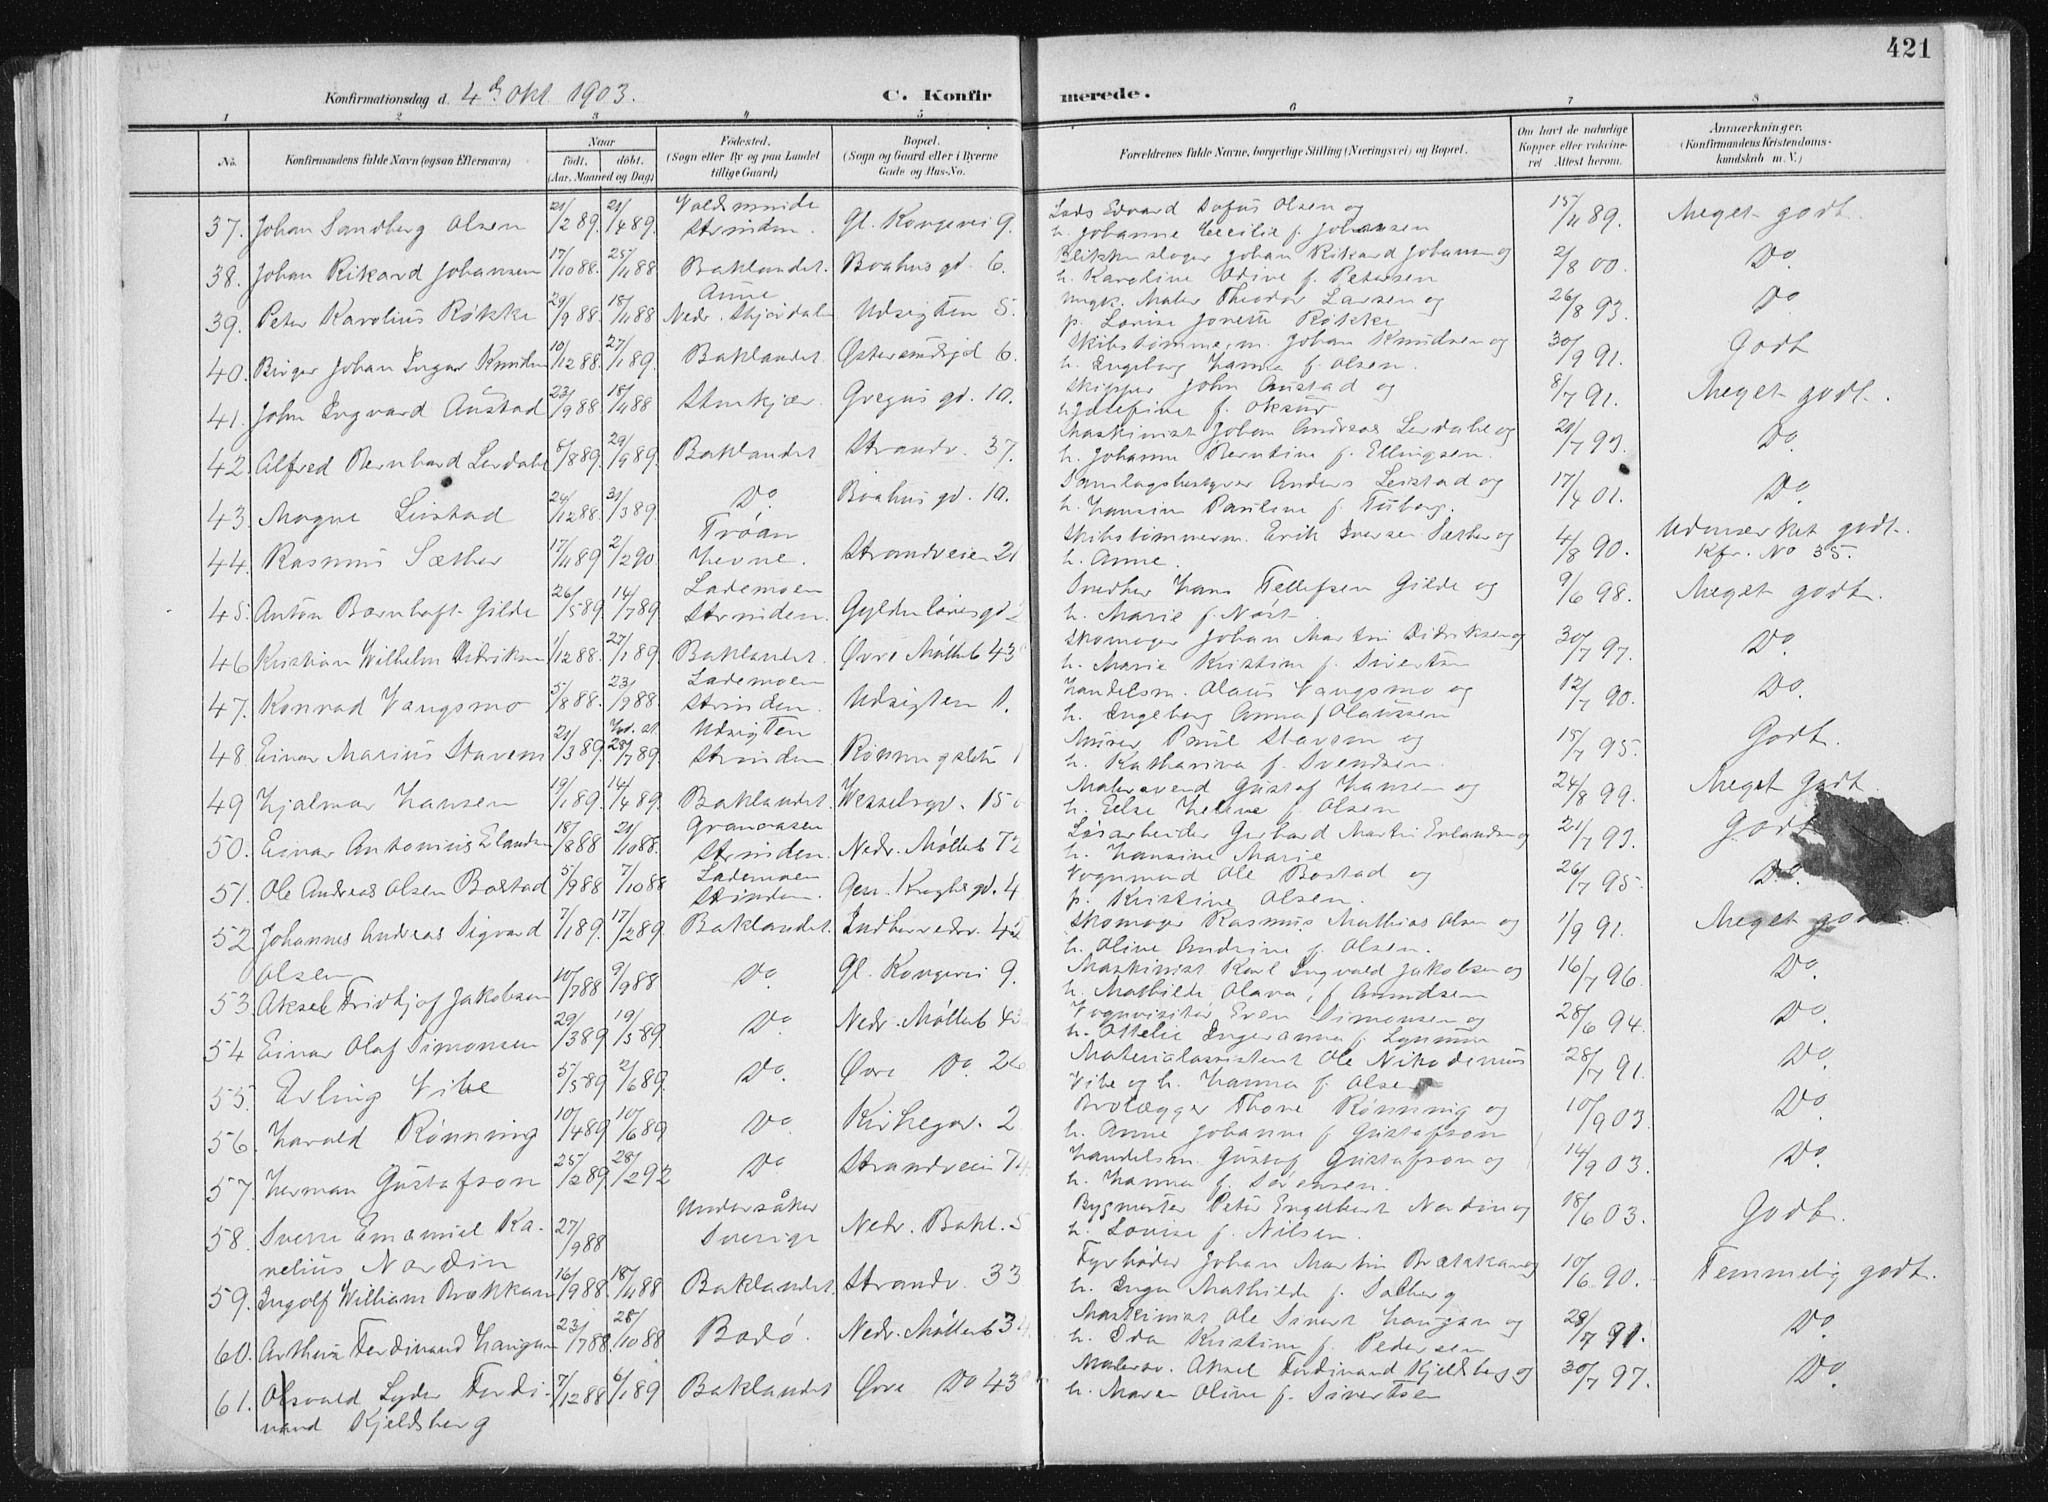 421
Konfirmationsdag d. 4de Okt. 1903. C. Konfirmerede.
1 2 3 4 5 6 7 8
No. Konfirmandens fulde Navn (ogsaa Efternavn) Naar født, døbt. (Aar, Maaned og Dag) Fødested. (Sogn eller By og paa Landet tillige Gaard) Bopæl. (Sogn og Gaard eller i Byerne Gade og Hus-No. Forældrenes fulde Navne, borgerlige Stilling (Næringsvei) og Bopæl. Om havt de naturlige Kopper eller vaccineret Attest herom. Anmærkninger. (Konfirmandens Kristendomskundskab m. V.)
37. Johan Sandberg Olsen 21/2 89. 21/4 89. Strinden. Gl. Kongevei 9. Edvard Sofus Olsen og h. Johanne Cecilie f. Johansen 15/11 89. Meget godt.
38. Johan Rikard Johansen 17/10 88. 25/11 88 Baklandet. Boahus gd. 6. Blikkenslager Johan Rikard Johansen og h. Karoline Odine f. Petersen 2/8 00. Do.
39. Peter Karolius Røkke 29/9 88. 18/11 88 Aune Nedr. Stjørdalen Udsigten 5. Ungk. Maler Theodor Larsen og p. Lovise Jonette Røkke 26/8 93. Do
40. Birger Johan Ingvar Knudsen 10/12 88. 27/1 89. Baklandet. Østersundsgd 6. Skibstømmerm. Johan Knudsen og h. Ingeborg Hanna f. Olsen. 30/9 91. Godt
41. John Ingvard Austad 23/9 88. 18/11 88 Stenkjær. Gregus gd. 10. Skipper John Austad og h. Josefine f. 8/7 91. Meget godt.
42. Alfred Bernhard Lerdahl 8/8 89. 29/9 89. Baklandet Strandv. 37. Maskinist Johan Andreas Lerdahl og h. Johanne Berntine f. Ellingsen. 21/7 93. Do.
43. Magne Leistad 24/12 88. 31/3 89. Do. Boahus gd. 10. Samlagsbestyrer Anders Leistad og h. Hansine Pauline f. Tuborg. 17/4 01. Do.
44. Rasmus Sæther 17/11 89 2/2 90. Trøan Hevne. Strandveien 21 Skibstømmerm. Erik Iversen Sæther og h. Anne. 4/8 90. Udmærket godt. Kfr. No 35.
45. Anton Bornhoft Gilde 26/5 89. 14/7 89 Lademoen Strinden. Gyldenløves gd 2 Snedker Hans Tellefsen Gilde og h. Marie f. Nøst. 9/6 98. Meget godt.
46. Kristian Wilhelm Didriksen 1/12 88. 27/1 89. Baklandet. Øvre Mølleb 43 Skomager Johan Martin Didriksen og h. Marie Kristine f. Sivertsen 30/7 97. Do.
47. Konrad Vangsmo 5/8 88. 23/9 88. Lademoen Strinden. Udsigten 1. Handelsm. Olaus Vangsmo og h. Ingeborg Anna f. Olaussen 12/7 90. Do.
48. Einar Marius Stavem 21/3 89. 28/7 89. Udsigten Strinden Rønningsletten 1 Murer Paul Stavem og h. Katharina f. Svendsen. 15/7 95. Godt.
49 Hjalmar Hansen 19/1 89. 14/4 89. Baklandet. Wesselsgd. 15 Malersvend Gustaf Hansen og h. Else Helene f. Olsen 24/8 99. Meget godt
50. Einar Antonius Erlandsen 18/8 88 21/10 88. Granaasen Strinden. Nedr. Mølleb 72 Løsarbeider Gerhard Martin Erlandsen og h. Hansine Marie 21/7 93. Godt
51. Ole Andreas Olsen Bostad 5/9 88 7/10 88 Lademoen Strinden. Gen. Kroghsgd. 4 Vognmand Ole Bostad og p. Kristine Olsen. 26/7 95. Do.
52. Johannes Andreas Sigvard Olsen 7/1 89. 17/2 89. Baklandet. Indherredsv. 45 Skomager Rasmus Mathias Olsen og h. Oline Andrine f. Olsen. 1/9 91. Meget godt
53. Aksel Fridtjof Jakobsen 10/7 88 9/9 88 Do. Gl. Kongevei 9. Maskinist Karl Ingvald Jakobsen og h. Mathilde Olava, f. Amundsen 16/7 96. Do.
54 Einar Olaf Simonsen 29/3 89 19/5 89 Do. Nedr. Møllenb 43 Vognvisitør Even Simonsen og h. Ottelie Ingeranna f. Lynum 28/6 94. Do.
55. Erling Vibe 5/5 89. 2/6 89. Do. Øvre Do. 26 Materialassistent Ole Nikodemus Vibe og h. Hanna f. Olsen 28/7 91. Do.
56. Harald Rønning 10/4 89. 10/6 89 Do. Kirkegd. 2 Brolægger Thore Rønning og h. Anne Johanne f. Gustafson 10/9 03. Do.
57. Herman Gustafson 25/2 89. 28/2 92 Do. Strandveien 74 Handelsm. Gustaf Gustafson og h. Hanna f. Sørensen. 14/9 03. Do.
58. Sverre Emanuel Kanelius Nordin 27/9 88 Undersåker Sverige Nedr. Bakl. 5 Bygmester Peter Engelbert Nordin og h. Lovise f. Nilsen. 18/6 03. Godt.
59. Ingolf William Brækkan 16/9 88. 18/11 88 Baklandet. Strandv. 33 Fyrbøder Johan Martin Brækkan og h. Inga Mathilde f. Solberg 10/6 90. Temmelig godt.
60. Arthur Ferdinand Haugan 23/7 88. 28/10 88 Bodø. Nedr. Møllenb 34 Maskinist Ole Sivert Haugan og h. Ida Kristine f. Pedersen 28/7 91. Do.
61. Osvald Lyder Ferdinand Kjeldsberg 7/12 88 6/1 89 Baklandet Øvre Do 43 Malersv. Aksel Ferdinand Kjeldsberg og h. Maren Oline f. Sivertsen 30/7 97. Do.